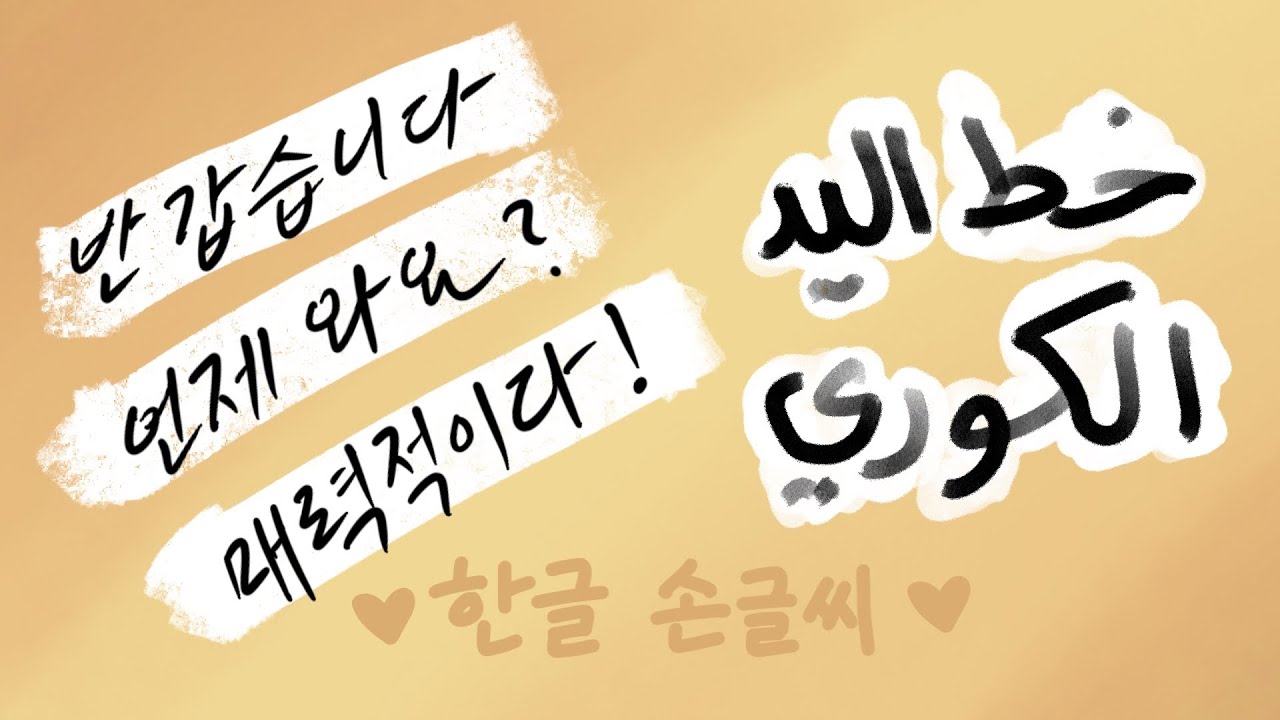 반갑습니다
언제 와요?
매력적이다!
خط اليد
الكوري
♥한글 손글씨♥